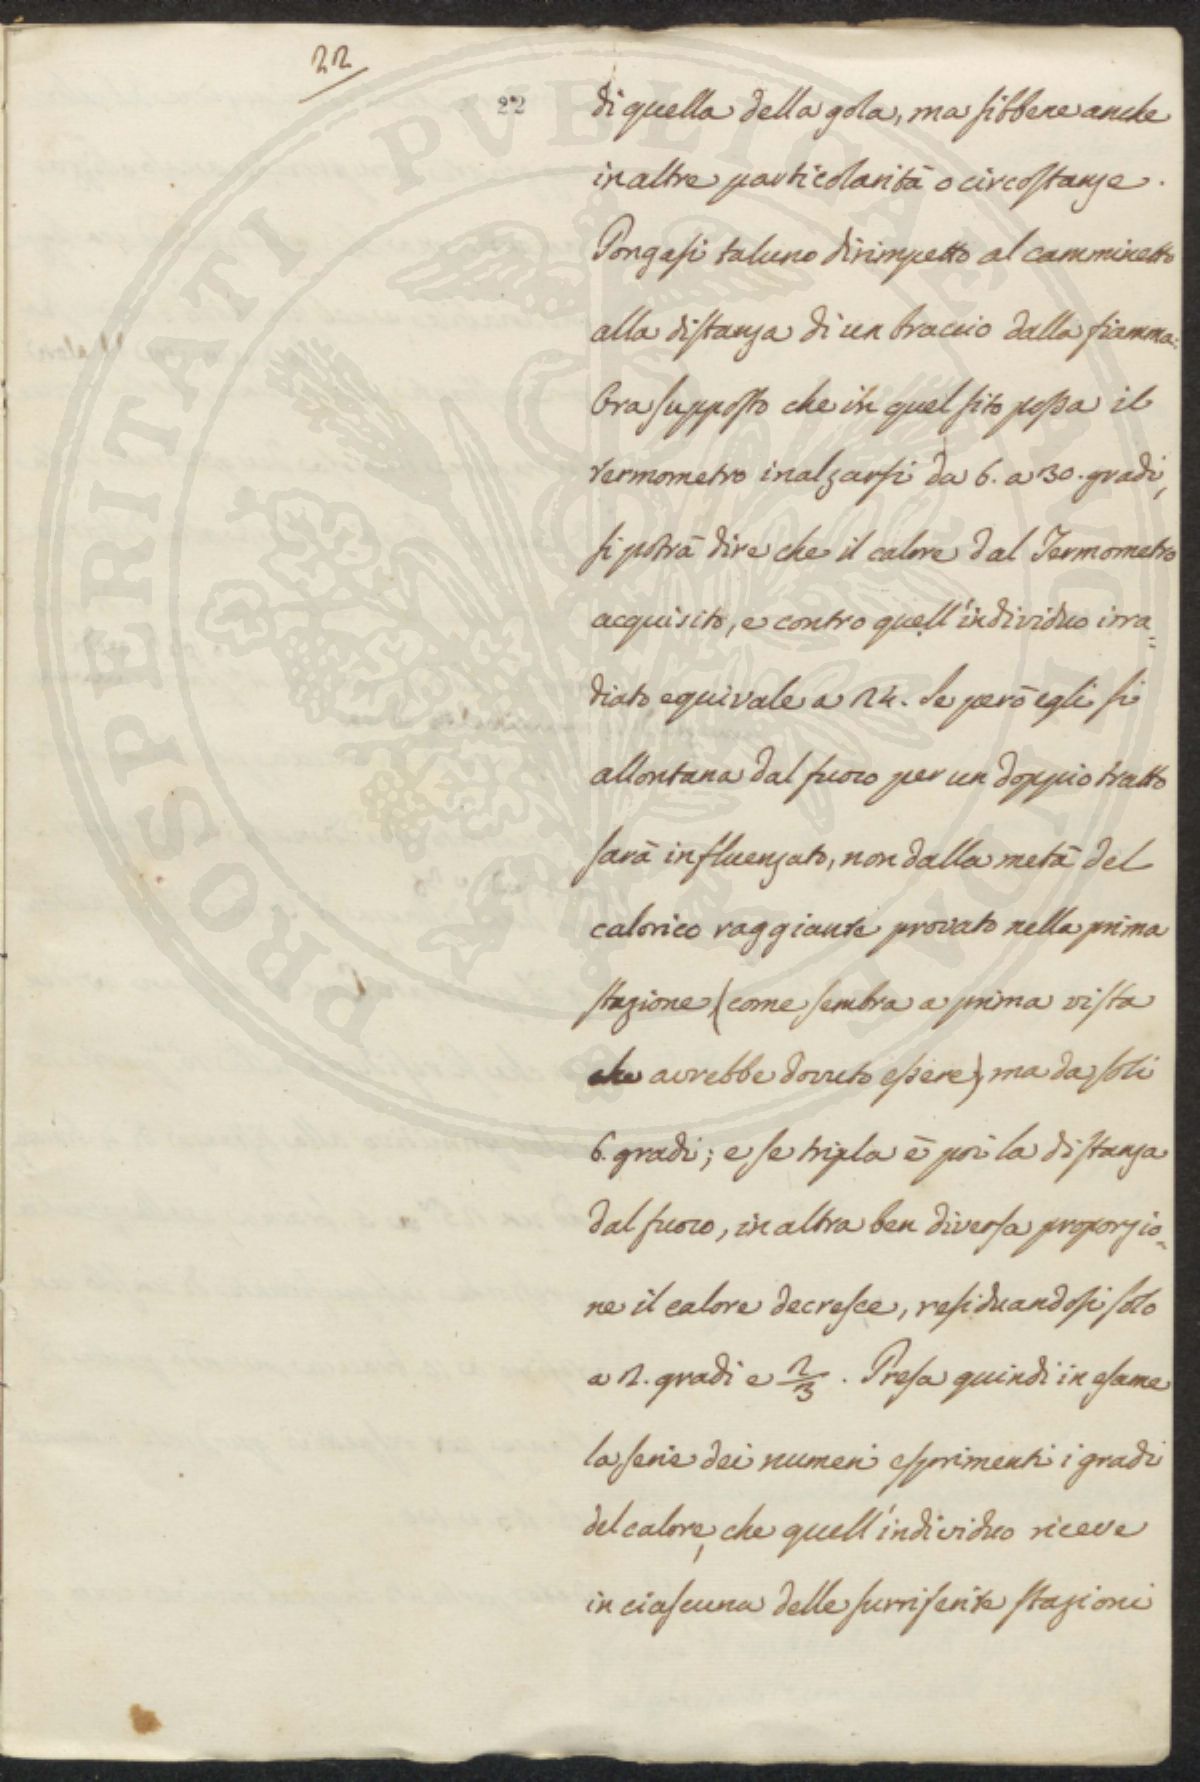 22
22
di quella della gola, ma sibbene anche
in altre particolarità o circostanze.
Pongasi taluno dirimpetto al camminetto
alla distanza di un braccio dalla fiamma:
Ora supposto che in quel sito possa il
termometro inalzarsi da 6. a 30. gradi,
si potrà dire che il calore dal Termometro
acquisito, e contro quell'individuo irra=
diato equivale a 24. Se però egli si
allontana dal fuoco per un doppio tratto
sarà influenzato, non dalla metà del
calorico raggiante provato nella prima
stazione (come sembra a prima vista
che avrebbe dovuto essere) ma da soli
6. gradi; e se tripla è poi la distanza
dal fuoco, in altra ben diversa proporzio=
ne il calore decresce, residuandosi solo
a 2. gradi e 2/3. Presa quindi in esame
la serie dei numeri esprimenti i gradi
del calore, che quell'individuo riceve
in ciascuna delle surriferite stazioni
PROSPERITATI PVBLICAE AVGENDAE